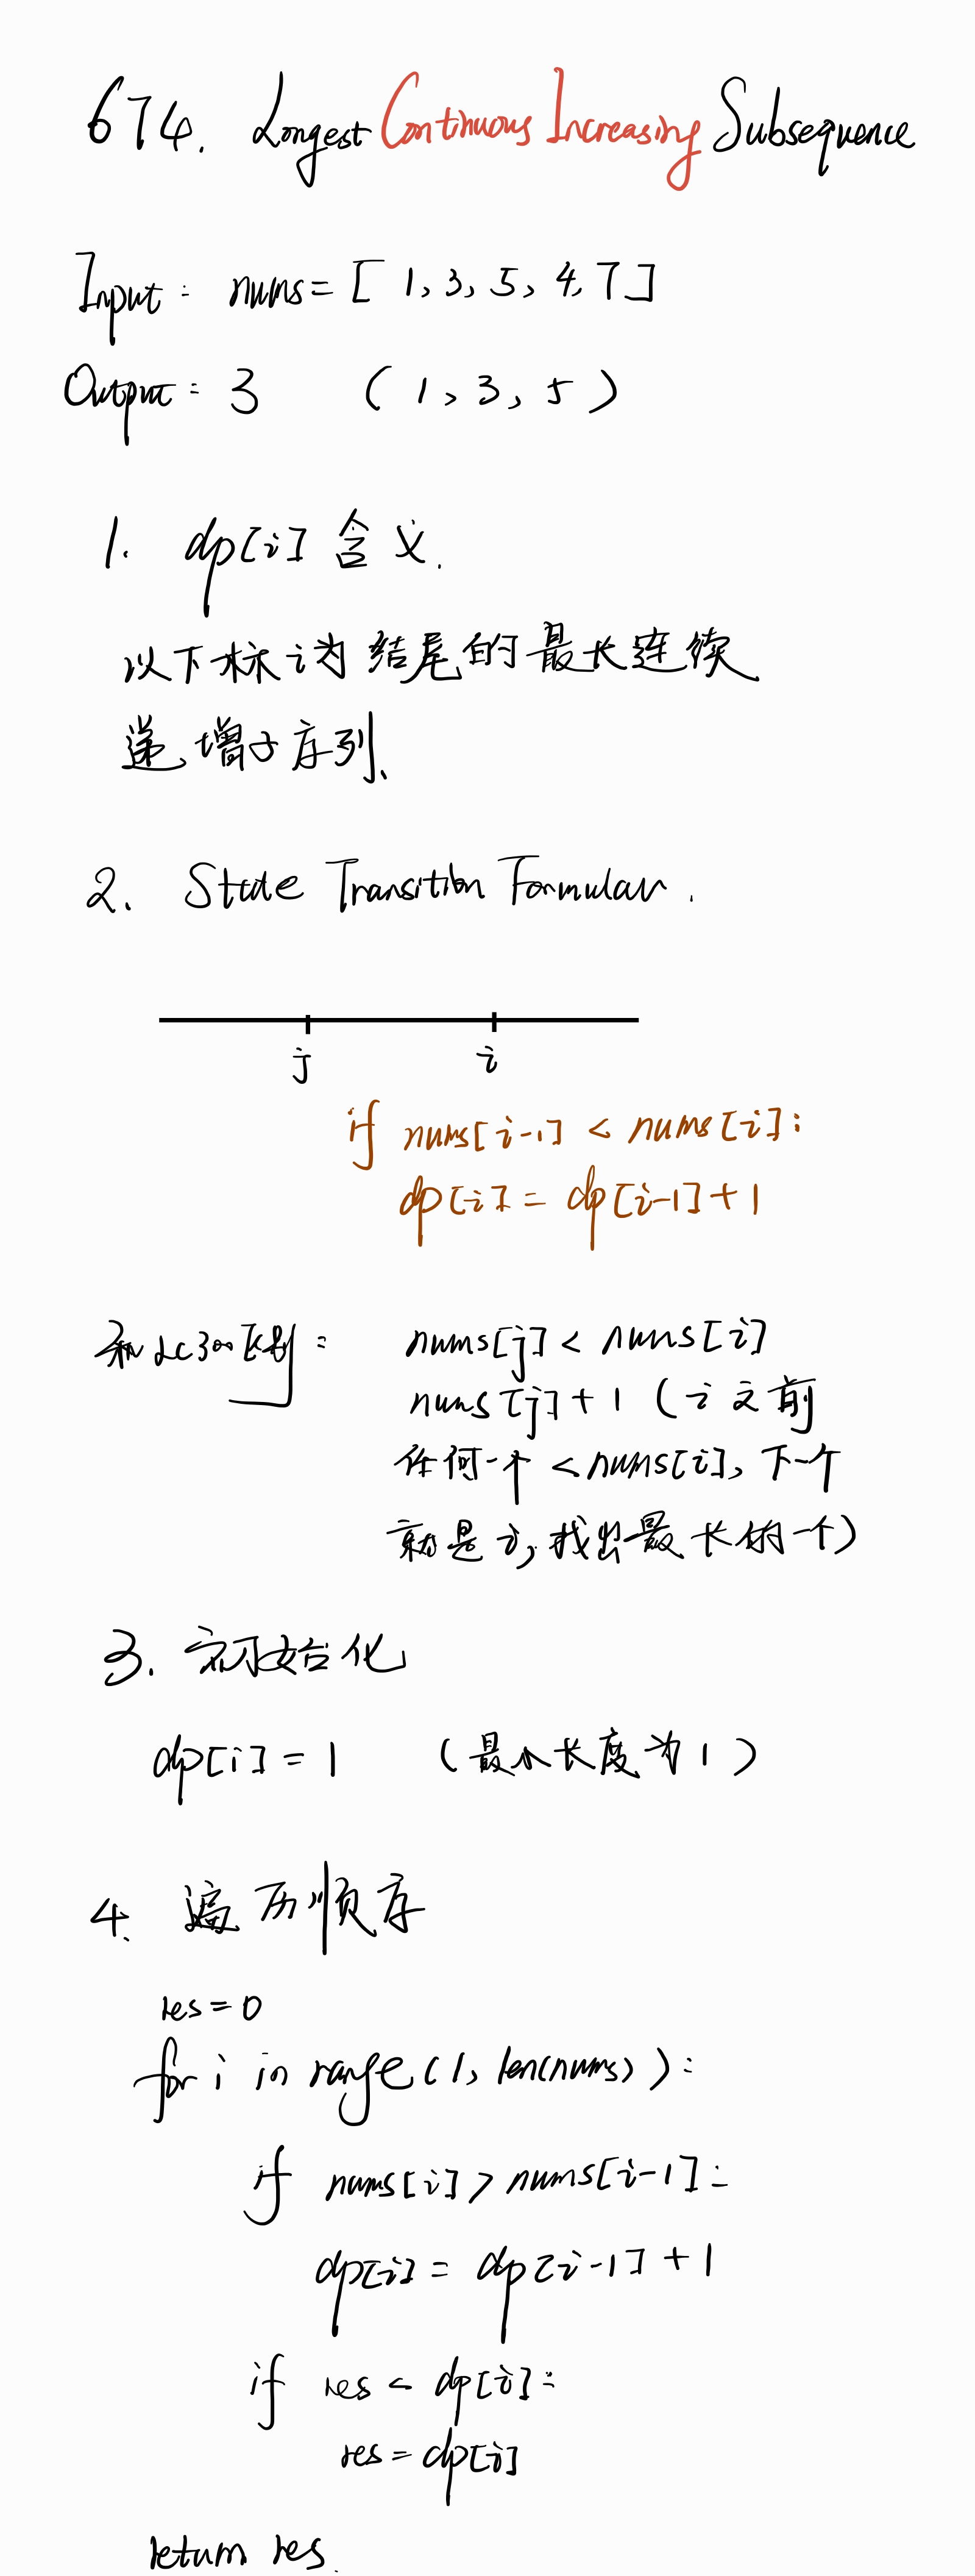 674. Longest Continuous Increasing Subsequence
Input: nums = [ 1, 3, 5, 4, 7 ]
Output: 3 ( 1, 3, 5 )
1. dp[i] 含义.
以下标i为结尾的最长连续
递增子序列、
2. State Transition Formular.
j i
if nums[i-1] < nums[i]:
dp[i] = dp[i-1] + 1
和LC300区别: nums[j] < nums[i]
nums[j] + 1 (i之前
任何一个 < nums[i], 下一个
就是i, 找出最长的一个)
3. 初始化
dp[i] = 1 (最小长度为1)
4. 遍历顺序
res = 0
for i in range(1, len(nums)):
if nums[i] > nums[i-1]:
dp[i] = dp[i-1] + 1
if res < dp[i]:
res = dp[i]
return res.